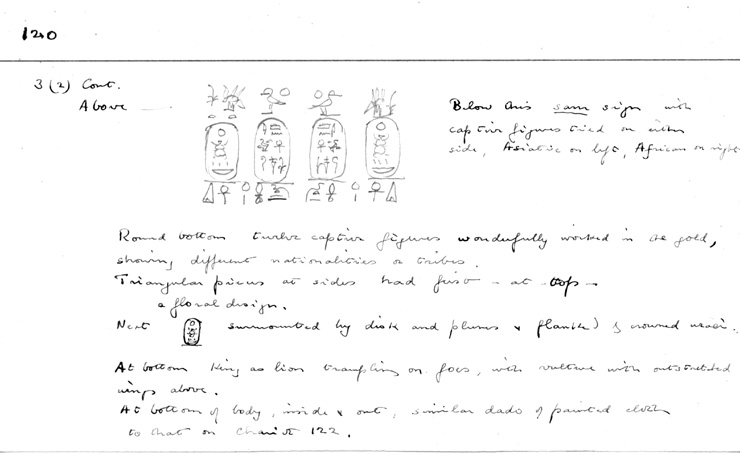 120
3 (2) Cont.
Above
Below this sam sign with
captive figures tied on either
side, Asiatic on left, African on right
Round bottom twelve captive figures wonderfully worked in the gold,
showing different nationalities or tribes.
Triangular pieces at sides had first - at top -
a floral design.
Next surmounted by disk and plumes & flanked by crowned uraei.
At bottom King as lion trampling on foes, with vulture with outstretched
wings above.
At bottom of body, inside & out, similar dado of painted cloth
to that on Chariot 122.